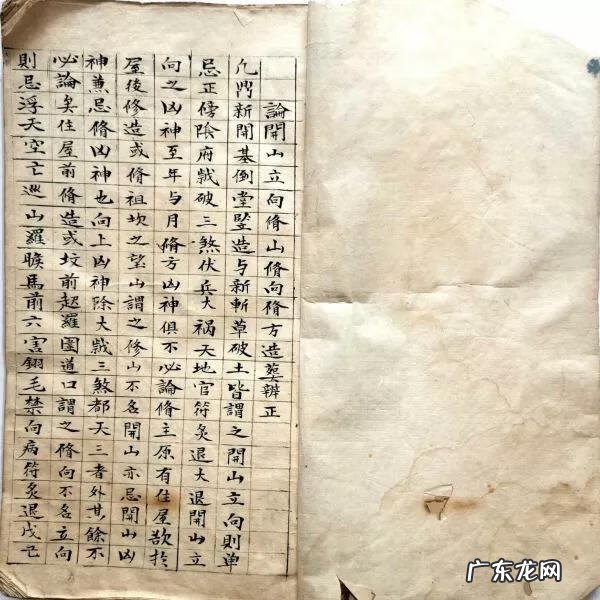 論開山立向脩山脩向脩方造葬辨正
凡新開基倒堂竪造与新斬草破土皆謂之開山立向則单
忌正傍陰府戟破三煞伏兵大禍天地官符炙退大退開山立
向之凶神至年与月脩方凶神俱不必論脩主原有住屋欲於
屋後修造或脩祖坎之望山謂之修山不名開山亦忌開山凶
神兼忌脩凶神也向上凶神除大戟三煞都天三者外其餘不
必論矣住屋前脩造或坟前起羅圍道口謂之脩向不名立向
則忌浮天空亡巡山羅睺馬前六害翎毛禁向病符炙退戊己
广东龙网